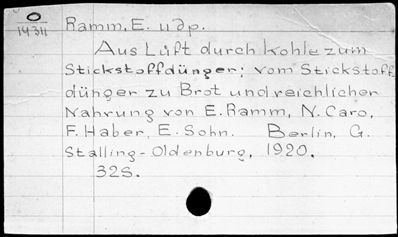 O
14311
Ramm, E. u dp.
Aus Luft durch Kohle zum
Stickstoffdünger; vom Stickstoff
dünger zu Brot und reichlicher
Nahrung von E. Ramm, N. Caro,
F. Haber, E. Sohn. Berlin, G.
Stalling-Oldenburg, 1920.
32S.